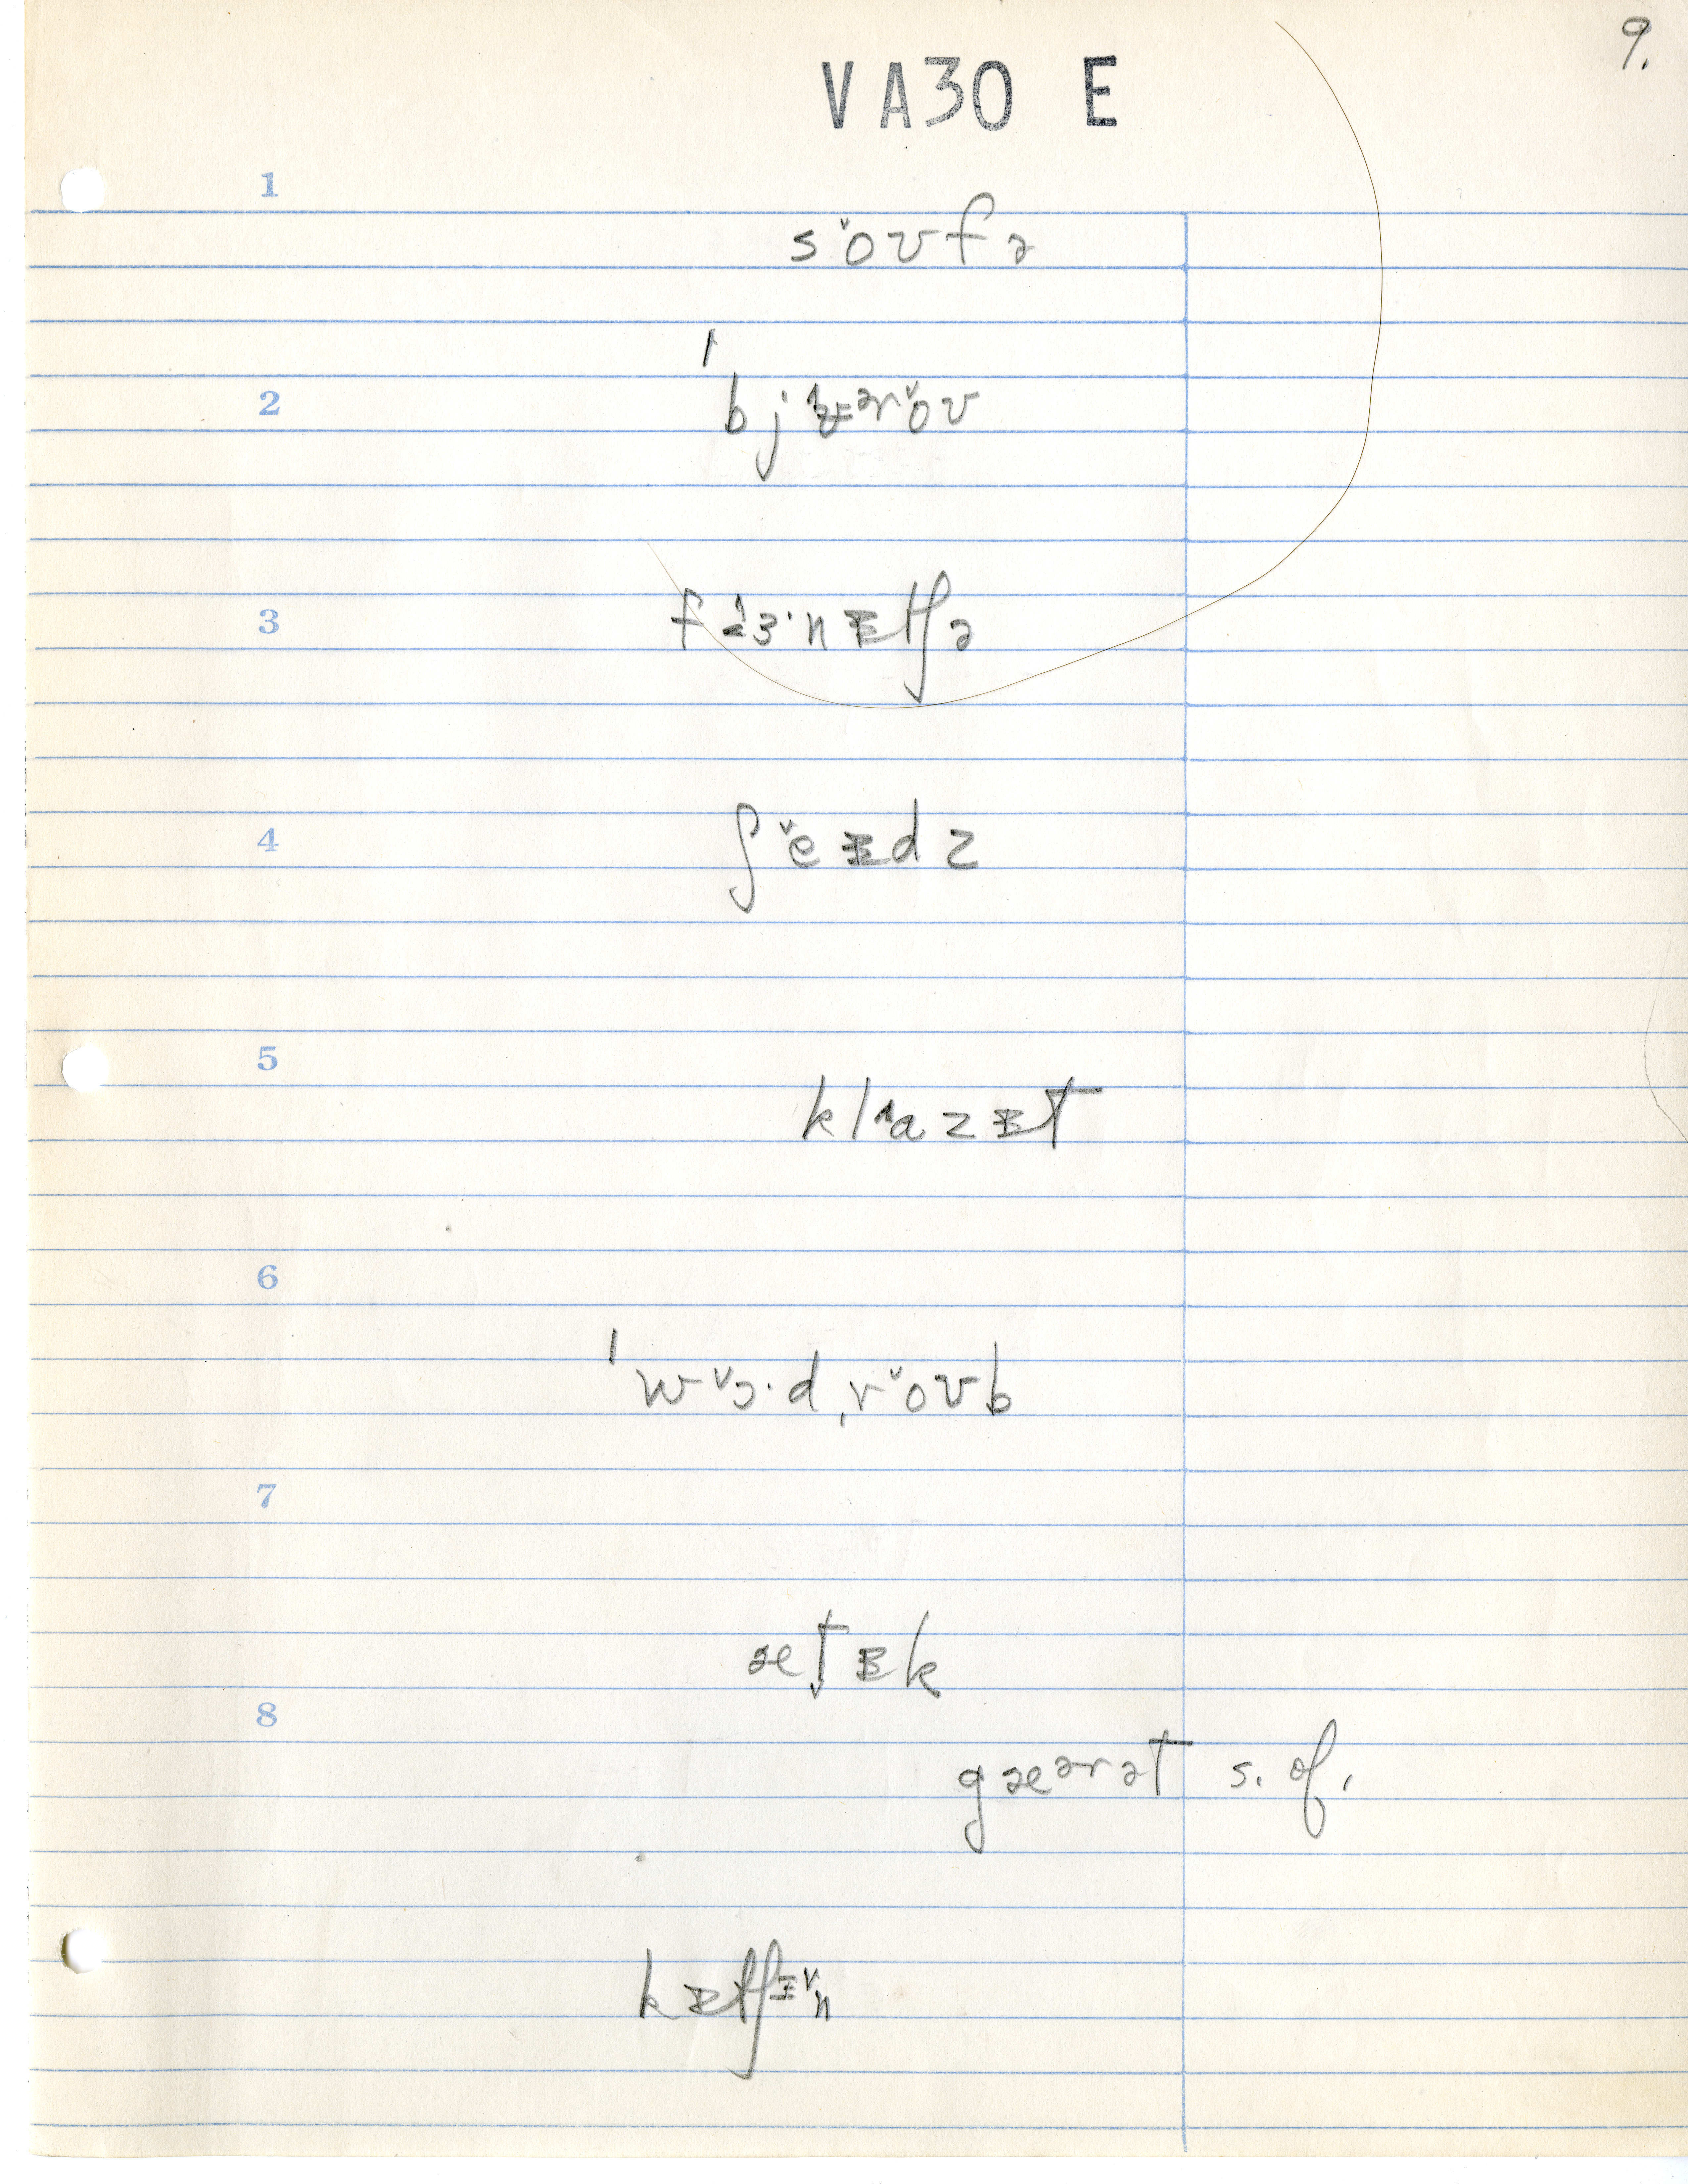 9.
VA30 E
1
s ˇoʊfə
2
ˈbjʊ^ərˇoʊ
3
f ^ɜ·nɪtʃə
4
ʃˇeɪdz
5
kl^azɪt
6
ˈwˇɔ·dˌrˇoʊb
7
ætɪk
8
gærət s. of.
kɪtʃɪˇn